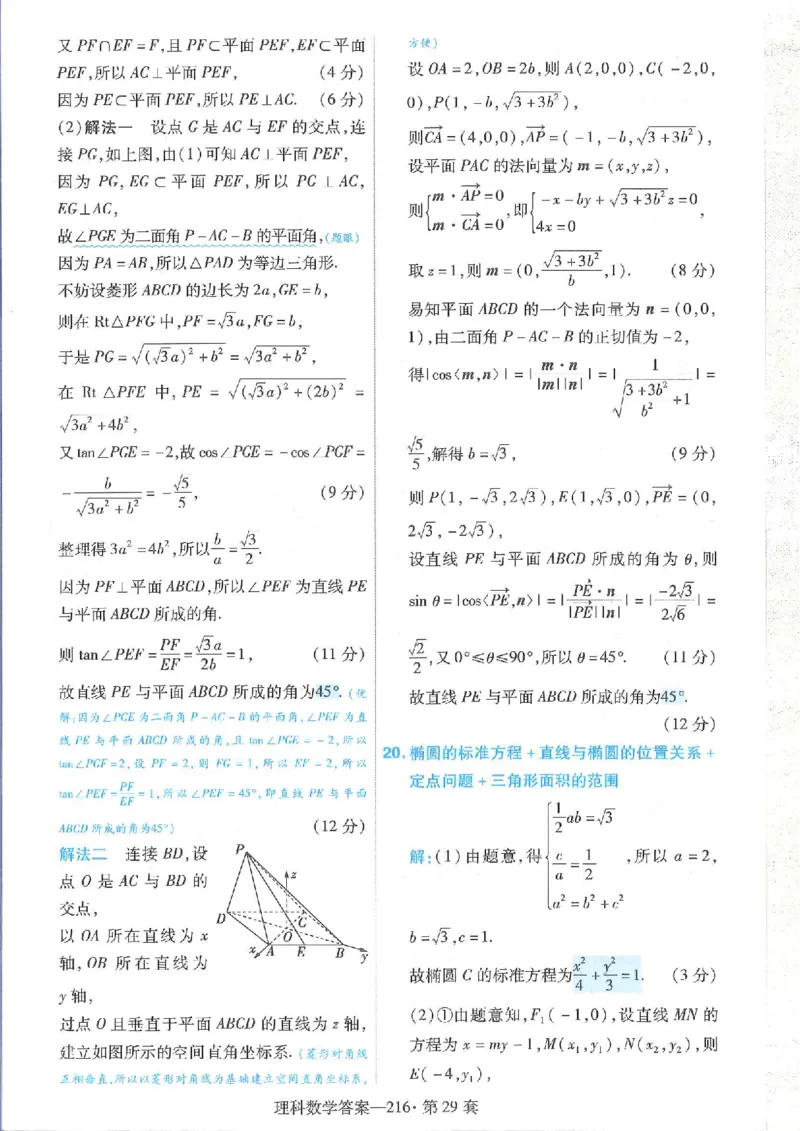 又 PF∩EF=F,且 PF⊂平面 PEF,EF⊂平面
PEF,所以 AC⊥平面 PEF, (4 分)
因为 PE⊂平面 PEF,所以 PE⊥AC. (6 分)
(2)解法一 设点 G 是 AC 与 EF 的交点,连
接 PG,如上图,由(1)可知 AC⊥平面 PEF,
因为 PG,EG⊂平面 PEF,所以 PG⊥AC,
EG⊥AC,
故∠PGE 为二面角 P-AC-B 的平面角,(题眼)
因为 PA=AB,所以△PAD 为等边三角形.
不妨设菱形 ABCD 的边长为 2a,GE=b,
则在 Rt△PFG 中,PF=√3a,FG=b,
于是 PG=√((√3a)²+b²)=√(3a²+b²),
在 Rt △PFE 中, PE = √((√3a)²+(2b)²) =
√(3a²+4b²),
又 tan∠PGE=-2,故 cos∠PGE=-cos∠PGF=
-b/√(3a²+b²)=-√5/5, (9 分)
整理得 3a²=4b²,所以 b/a=√3/2.
因为 PF⊥平面 ABCD,所以∠PEF 为直线 PE
与平面 ABCD 所成的角.
则 tan∠PEF=PF/EF=√3a/2b=1, (11 分)
故直线 PE 与平面 ABCD 所成的角为45°. (优
解:因为∠PGE 为二面角 P-AC-B 的平面角,∠PEF 为直
线 PE 与平面 ABCD 所成的角,且 tan∠PGE=-2,所以
tan∠PGF=2,设 PF=2,则 FG=1,所以 EF=2,所以
tan∠PEF=PF/EF=1,所以∠PEF=45°,即直线 PE 与平面
ABCD 所成的角为45°) (12 分)
解法二 连接 BD,设
点 O 是 AC 与 BD 的
交点,
以 OA 所在直线为 x
轴,OB 所在直线为
y 轴,
P
z
D
C
O
x A E B y
过点 O 且垂直于平面 ABCD 的直线为 z 轴,
建立如图所示的空间直角坐标系.(菱形对角线
互相垂直,所以以菱形对角线为基础建立空间直角坐标系,
方便)
设 OA=2,OB=2b,则 A(2,0,0),C(-2,0,
0),P(1,-b,√(3+3b²)),
则CA→=(4,0,0),AP→=(-1,-b,√(3+3b²)),
设平面 PAC 的法向量为 m=(x,y,z),
则{m·AP→=0 m·CA→=0,即{-x-by+√(3+3b²)z=0 4x=0,
取 z=1,则 m=(0,√(3+3b²)/b,1). (8 分)
易知平面 ABCD 的一个法向量为 n=(0,0,
1),由二面角 P-AC-B 的正切值为-2,
得|cos⟨m,n⟩|=|m·n/|m||n||=|1/√((3+3b²)/b²+1)|=
√5/5,解得 b=√3, (9 分)
则 P(1,-√3,2√3),E(1,√3,0),PE→=(0,
2√3,-2√3),
设直线 PE 与平面 ABCD 所成的角为 θ,则
sin θ=|cos⟨PE→,n⟩|=|PE→·n/|PE→||n||=|-2√3/2√6|=
√2/2,又 0°≤θ≤90°,所以 θ=45°. (11 分)
故直线 PE 与平面 ABCD 所成的角为45°.
(12 分)
20. 椭圆的标准方程+直线与椭圆的位置关系+
定点问题+三角形面积的范围
解:(1)由题意,得{1/2ab=√3 c/a=1/2 a²=b²+c²,所以 a=2,
b=√3,c=1.
故椭圆 C 的标准方程为x²/4+y²/3=1. (3 分)
(2)①由题意知,F₁(-1,0),设直线 MN 的
方程为 x=my-1,M(x₁,y₁),N(x₂,y₂),则
E(-4,y₁),
理科数学答案—216·第 29 套